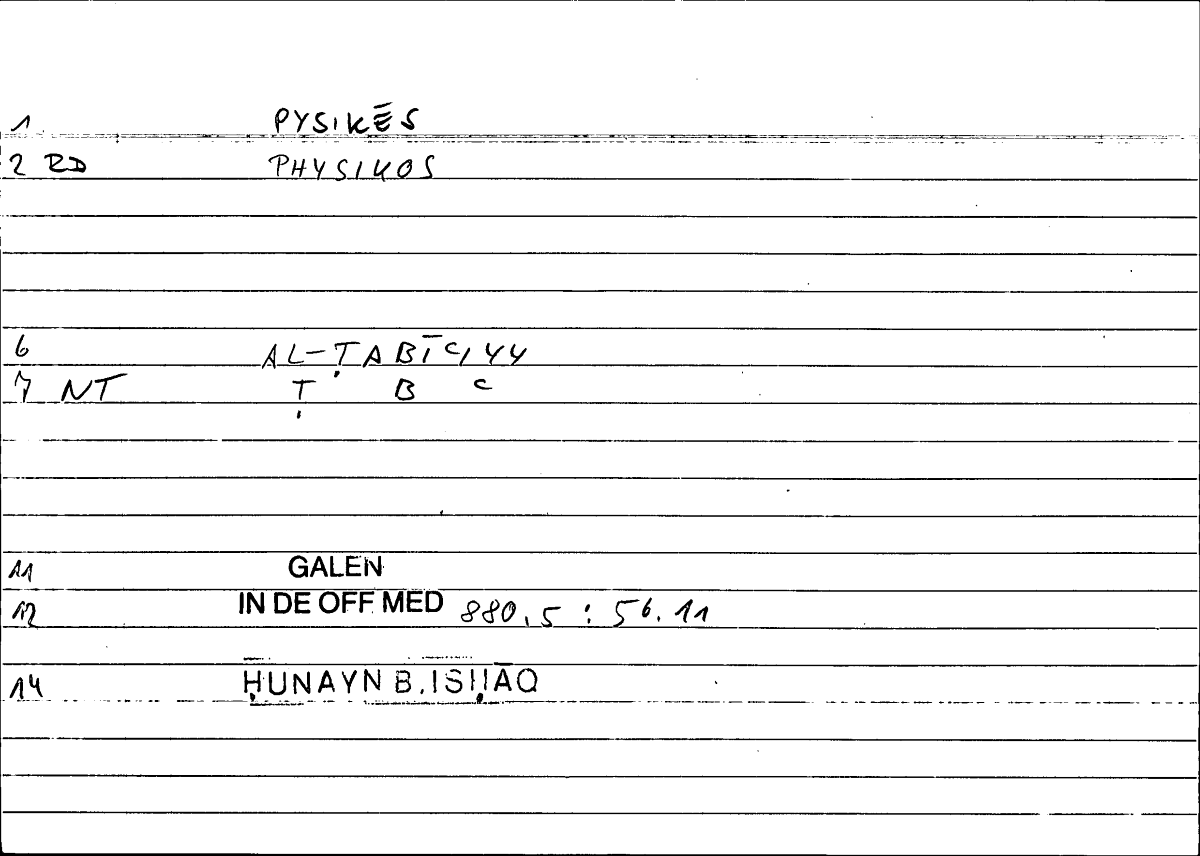 1 PYSIKĒS
2 RD PHYSIKOS
6 AL-ṬABĪCIYY
7 NT Ṭ B C
11 GALEN
12 IN DE OFF MED 880,5 : 56.11
14 ḤUNAYN B. ISḤĀQ